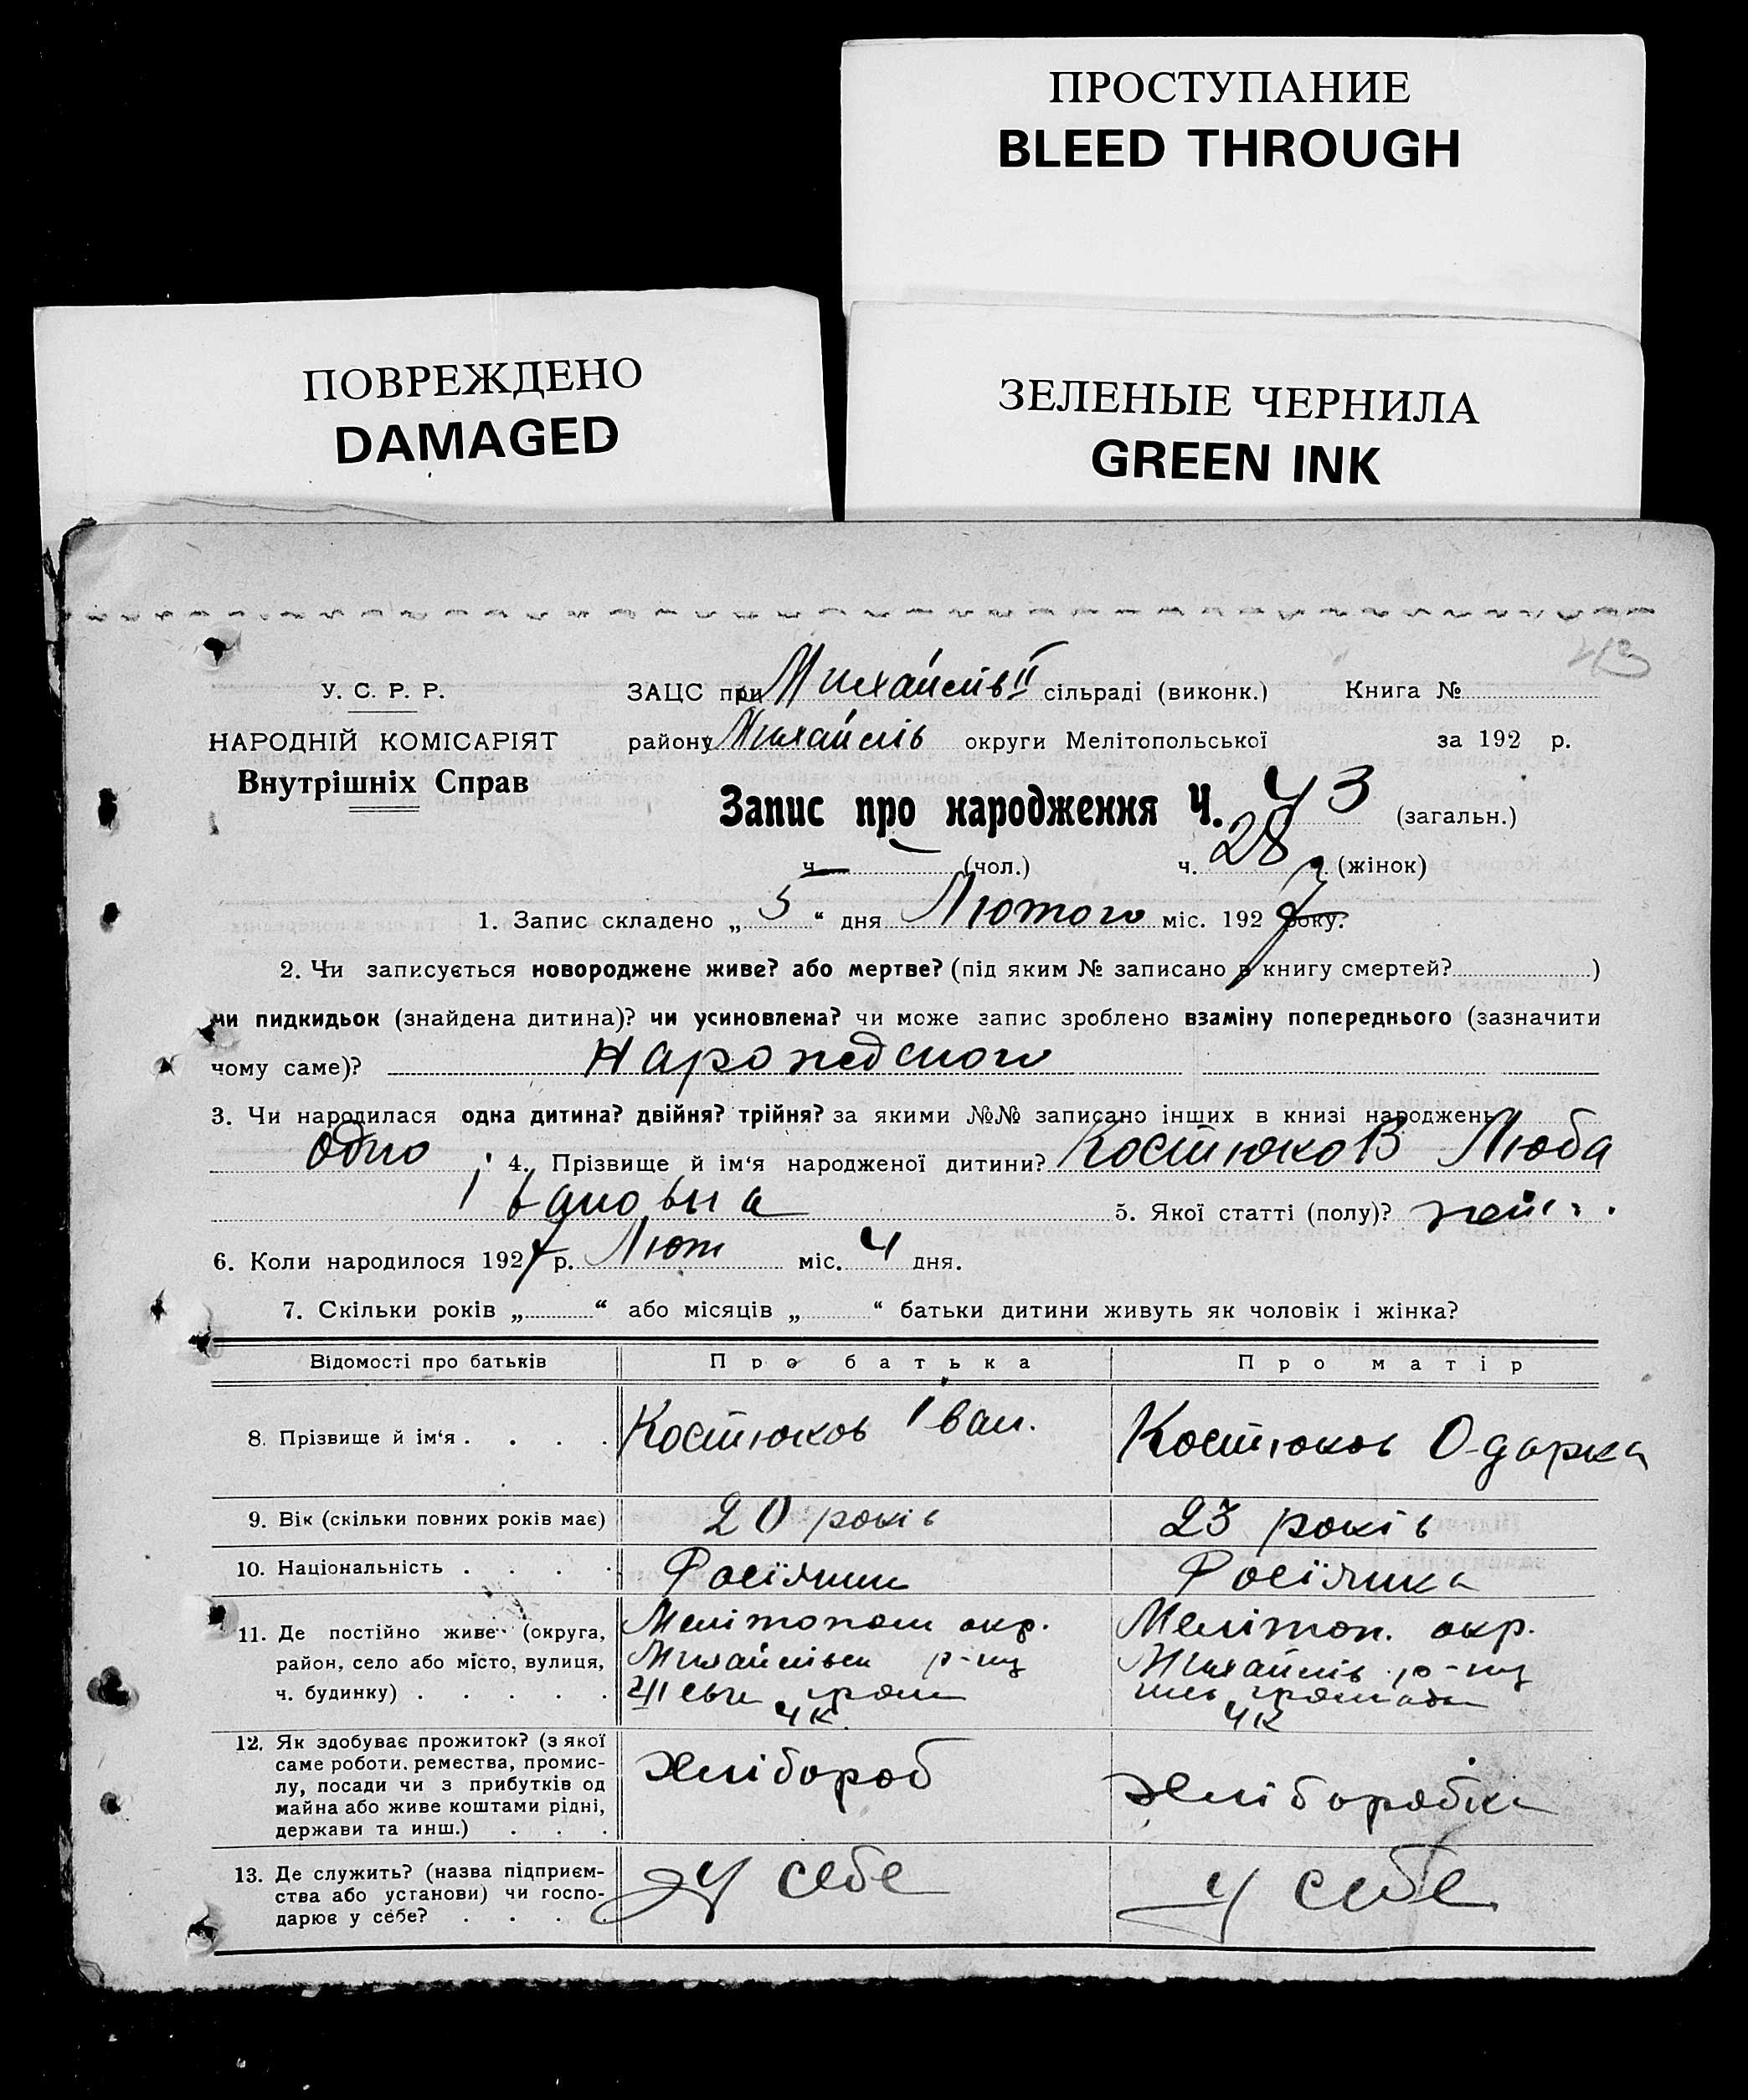 ПРОСТУПАНИЕ
BLEED THROUGH
ПОВРЕЖДЕНО
DAMAGED
ЗЕЛЕНЫЕ ЧЕРНИЛА
GREEN INK
43
У. С. Р. Р.
НАРОДНІЙ КОМІСАРІЯТ
Внутрішніх Справ
ЗАЦС при Михайлів II сільраді (виконк.) Книга №
району Михайлів округи Мелітопольської за 192 р.
Запис про народження Ч. 43 (загальн.)
ч. — (чол.) ч. 28 (жінок)
1. Запис складено „ 5 “ дня Лютого міс. 1927 року.
2. Чи записується новороджене живе? або мертве? (під яким № записано в книгу смертей? )
чи пидкидьок (знайдена дитина)? чи усиновлена? чи може запис зроблено взаміну попереднього (зазначити
чому саме)?
3. Чи народилася одна дитина? двійня? трійня? за якими №№ записано інших в книзі народжень
одно 4. Прізвище й ім'я народженої дитини? Костюков Люба
Івановна 5. Якої статті (полу)?
6. Коли народилося 1927 р. Лют міс. 4 дня.
7. Скільки років „ “ або місяців „ “ батьки дитини живуть як чоловік і жінка?
Відомості про батьків Про батька Про матір
8. Прізвище й ім'я . . . . Костюков Іван. Костюков Одарка
9. Вік (скільки повних років має) 20 років 23 років
10. Національність . . . . Росіянин Росіянка
11. Де постійно живе (округа, Мелітопол окр. Мелітоп. окр.
район, село або місто, вулиця, р-ну Михайлів р-ну
ч. будинку) . . . . .
12. Як здобуває прожиток? (з якої
саме роботи, ремества, промис- Хлібороб Хліборобка
лу, посади чи з прибутків од
майна або живе коштами рідні,
держави та инш.) . . .
13. Де служить? (назва підприєм- у себе у себе
ства або установи) чи госпо-
дарює у себе? . . . .